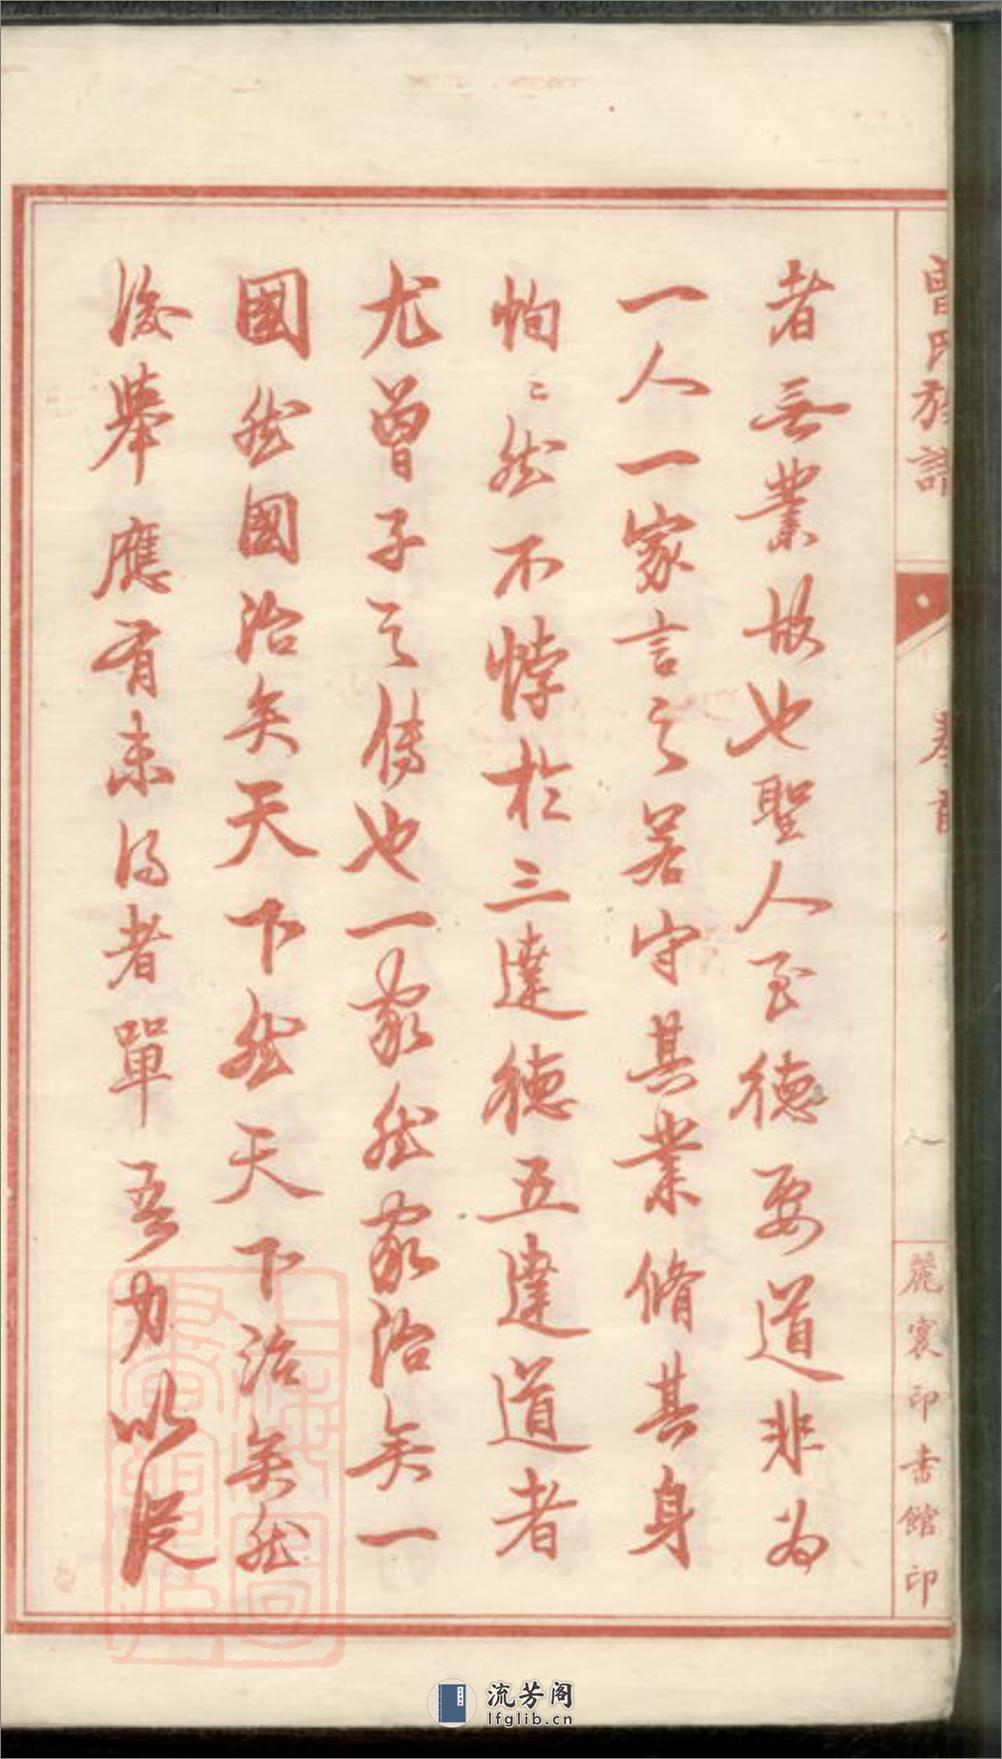 曾氏族譜
麗寰印書館印
者無業故也聖人至德要道非為
一人一家言之若守其業脩其身
恂〻然不悖於三達德五達道者
尤曾子之傳也一家然家治矣一
國然國治矣天下然天下治矣然
後舉應有未得者單吾力以從
流芳阁
lfglib.cn